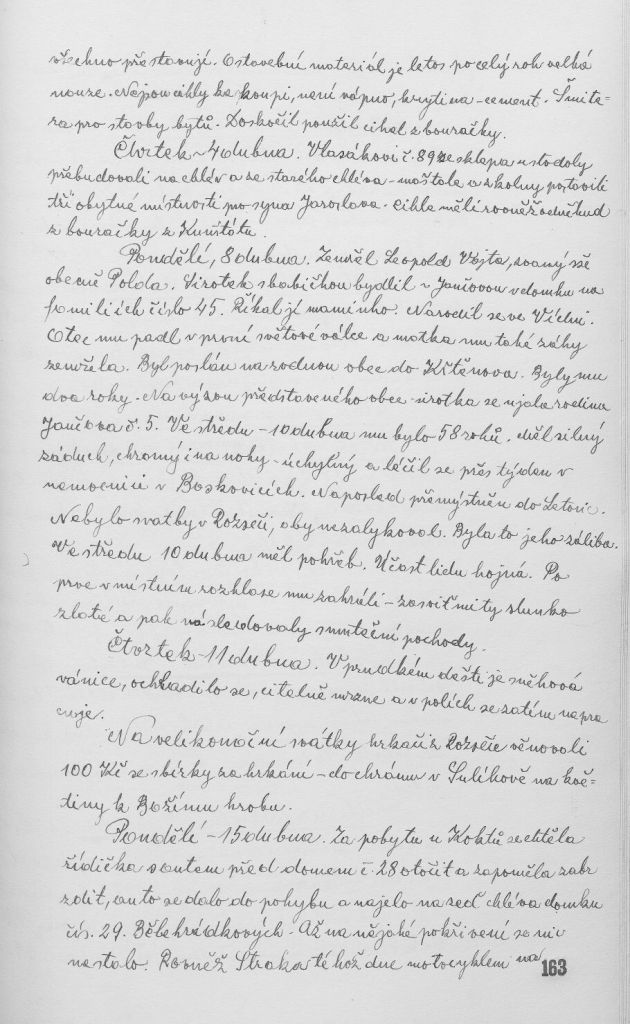 všechno přestavují. O stavební materiál je letos po celý rok velká
nouze. Nejsou cihly ke koupi, není vápno, krytina – cement. Šmite-
ra pro stavby bytů. Doskočil použil cihel z bouračky.
Čtvrtek – 4 dubna. Vlasákovi č. 89 ze sklepa u stodoly
přebudovali na chlév a ze starého chléva – maštale a kolny postavili
tři obytné místnosti pro syna Jaroslava. Cihle měli rovněž odněkud
z bouračky z Kunštátu.
Pondělí, 8 dubna. Zemřel Leopold Vojta, zvaný
obecně Polda. Sirotek s babičkou bydlil v Jančovou v domku na
familiích číslo 45. Říkal jí maminko. Narodil se ve Vídni.
Otec mu padl v první světové válce a matka mu také záhy
zemřela. Byl poslán na rodnou obec do Křtěnova. Byly mu
dva roky. Na výzvu představeného obce sirotka se ujala rodina
Jančova č. 5. Ve středu – 10 dubna mu bylo 58 roků. Měl silný
záduch, chromý i na nohy – úchylný a léčil se přes týden v
nemocnici v Boskovicích. Naposled přemýstněn do Letovic.
Nebylo svatby v Rozseči, aby nezalykoval. Byla to jeho záliba.
Ve středu 10 dubna měl pohřeb. Účast lidu hojná. Po
prve v místním rozhlase mu zahráli – zasviť mi ty slunko
zlaté a pak následovaly smuteční pochody.
Čtvrtek – 11 dubna. V prudkém dešti je sněhová
vánice, ochladilo se, citelně mrzne a v polích se zatím nepra
cuje.
Na velikonoční svátky hrkači z Rozseče věnovali
100 Kč se sbírky za hrkání – do chrámu v Sulíkově na kvě-
tiny k Božímu hrobu.
Pondělí – 15 dubna. Za pobytu u Koktů se chtěla
řidička s autem před domem č. 28 otočit a zapoměla zabr
zdit, auto se dalo do pohybu a najelo na zeď chléva domku
čís. 29. Bělehrádkových. Až na nějaké pokřivení se nic
nestalo. Rovněž Straka téhož dne motocyklem na
163